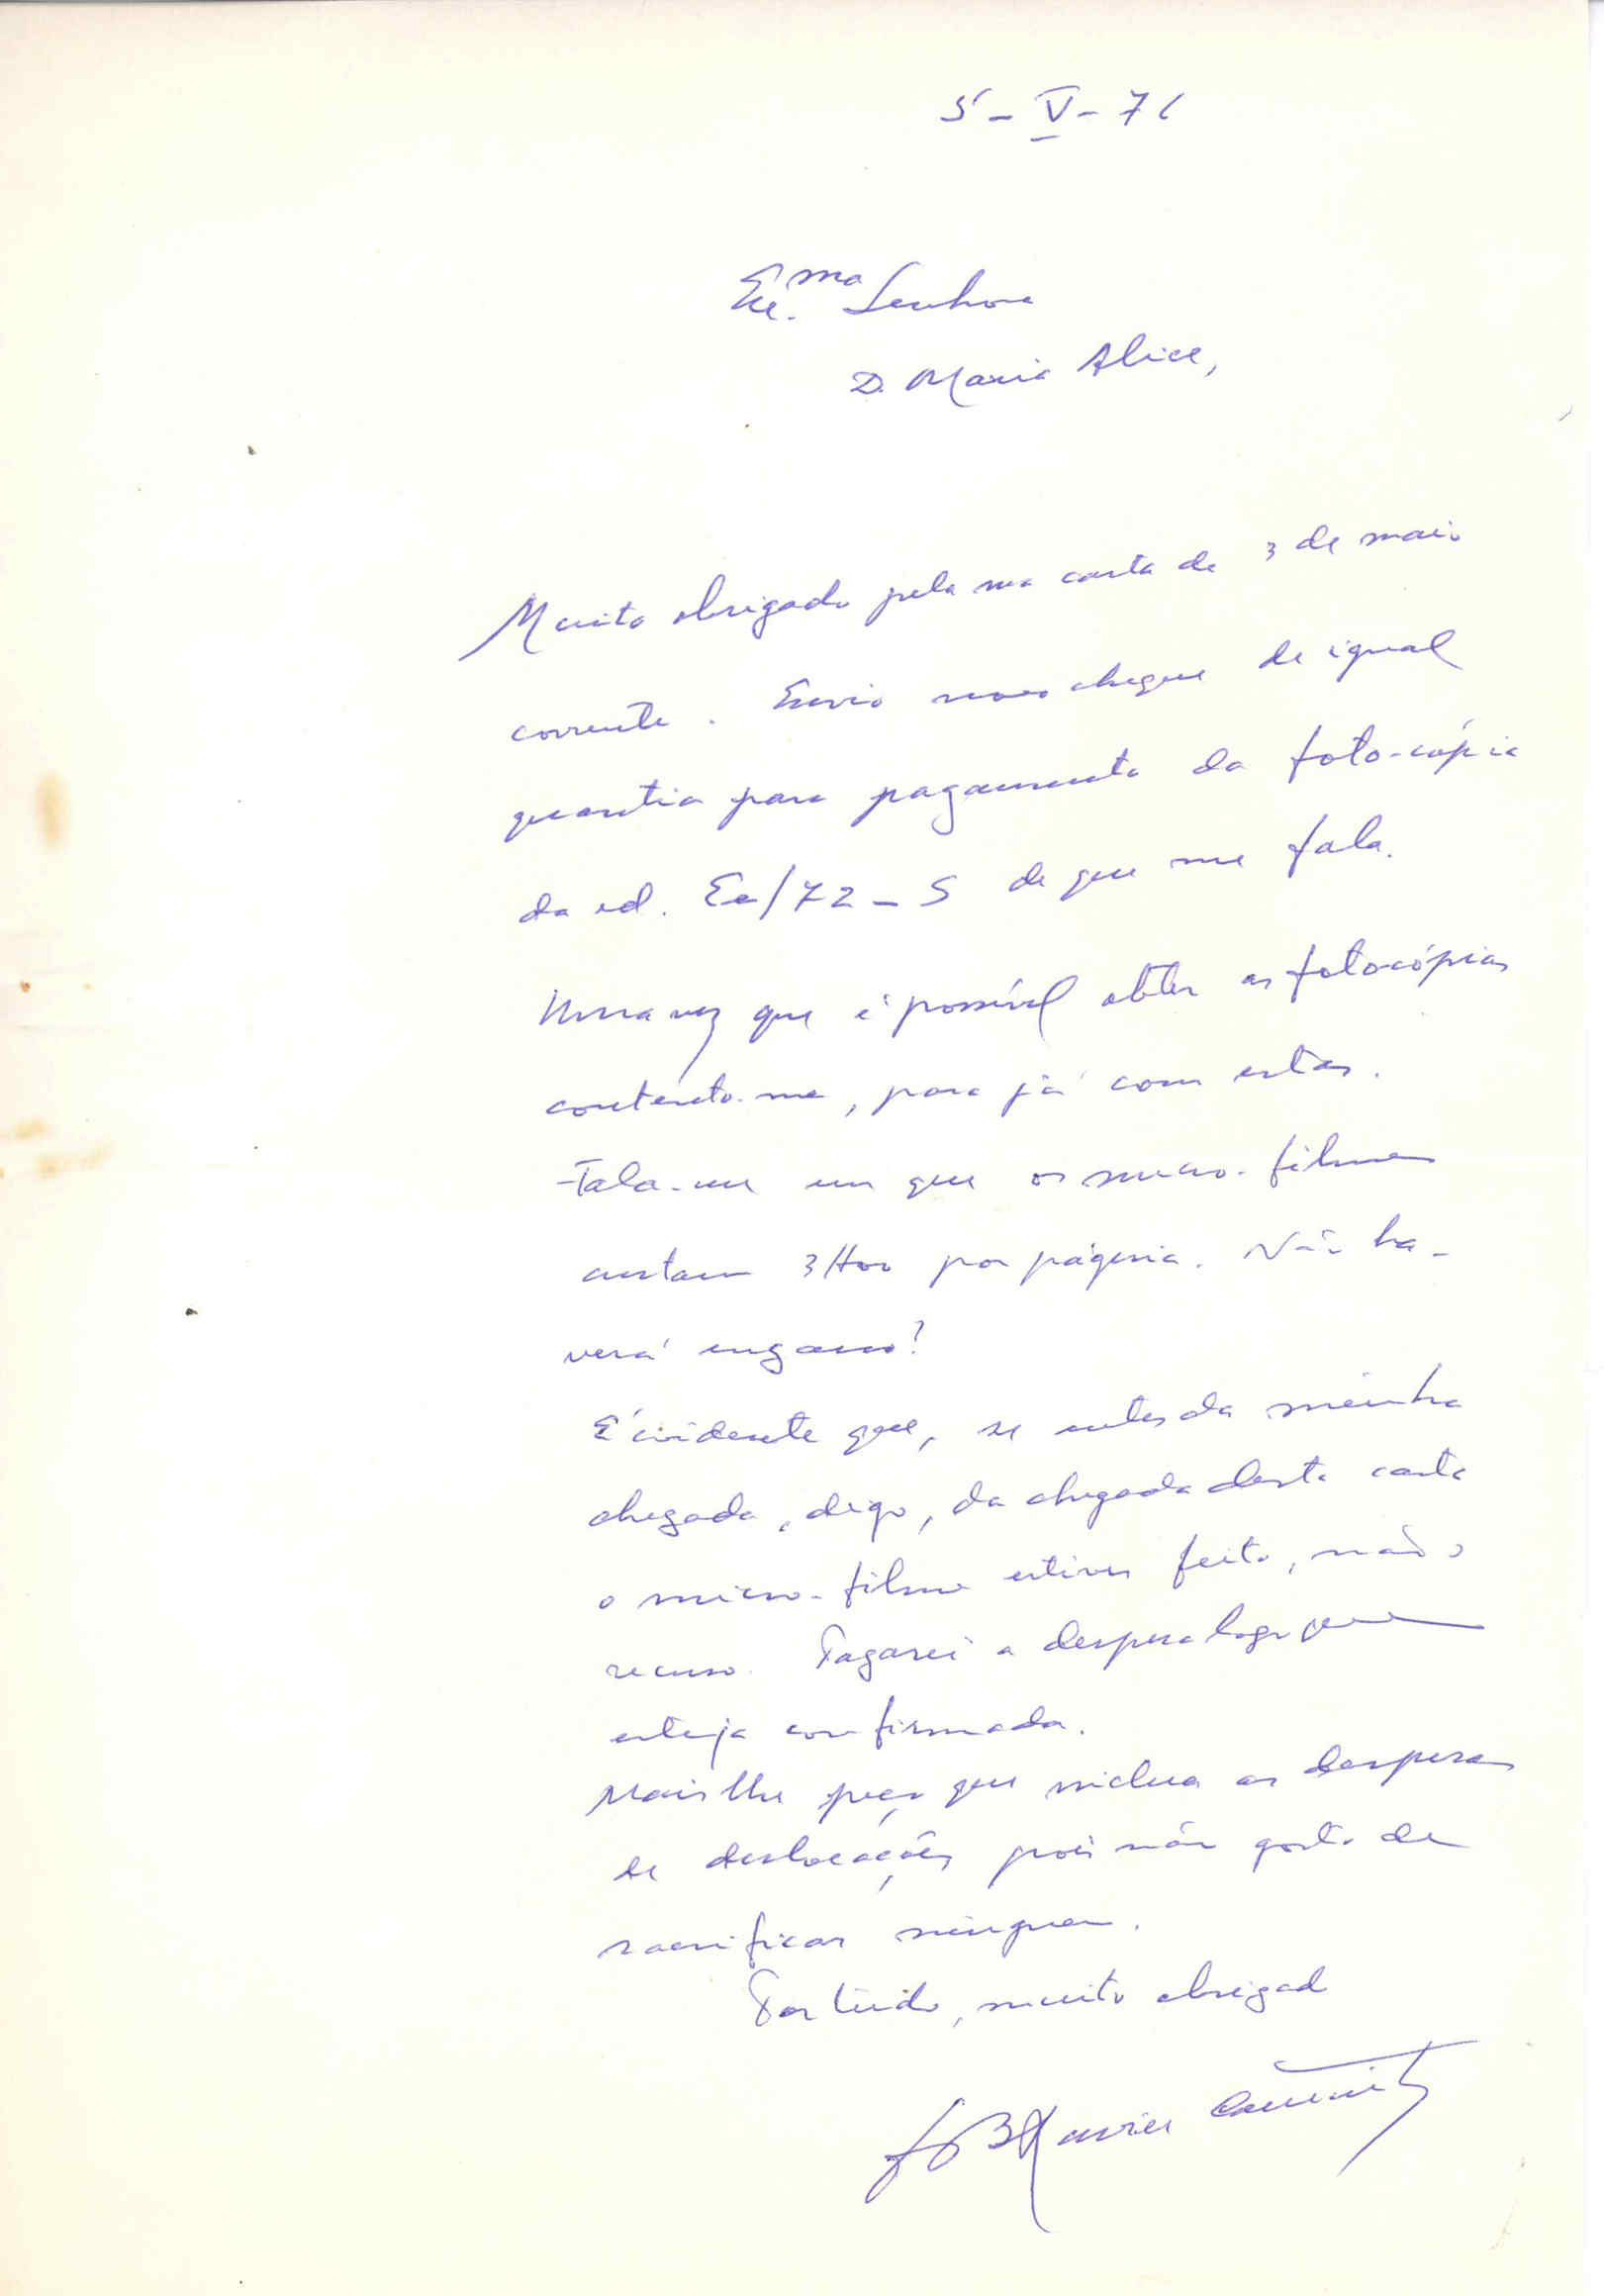 5-V-71
Exc.ma Senhora
D. Maria Alice,
Muito obrigado pela sua carta de 3 de maio
corrente. Envio novo cheque de igual
quantia para pagamento da foto-cópia
da ed. Ee/72-5 de que me fala.
Uma vez que é possível obter as fotocópias
contento-me, para já com estas.
Fala-me em que os micro-filmes
custam por página. Não ha-
verá engano?
É evidente que, se antes da minha
chegada, digo, da chegada desta carta
o micro-filme estiver feito, não o
recuso. Pagarei a despesa logo que
esteja confirmada.
Mais lhe peço que inclua as despesas
de deslocações pois não gosto de
sacrificar ninguem.
Por tudo, muito obrigad
Xavier Coutinho